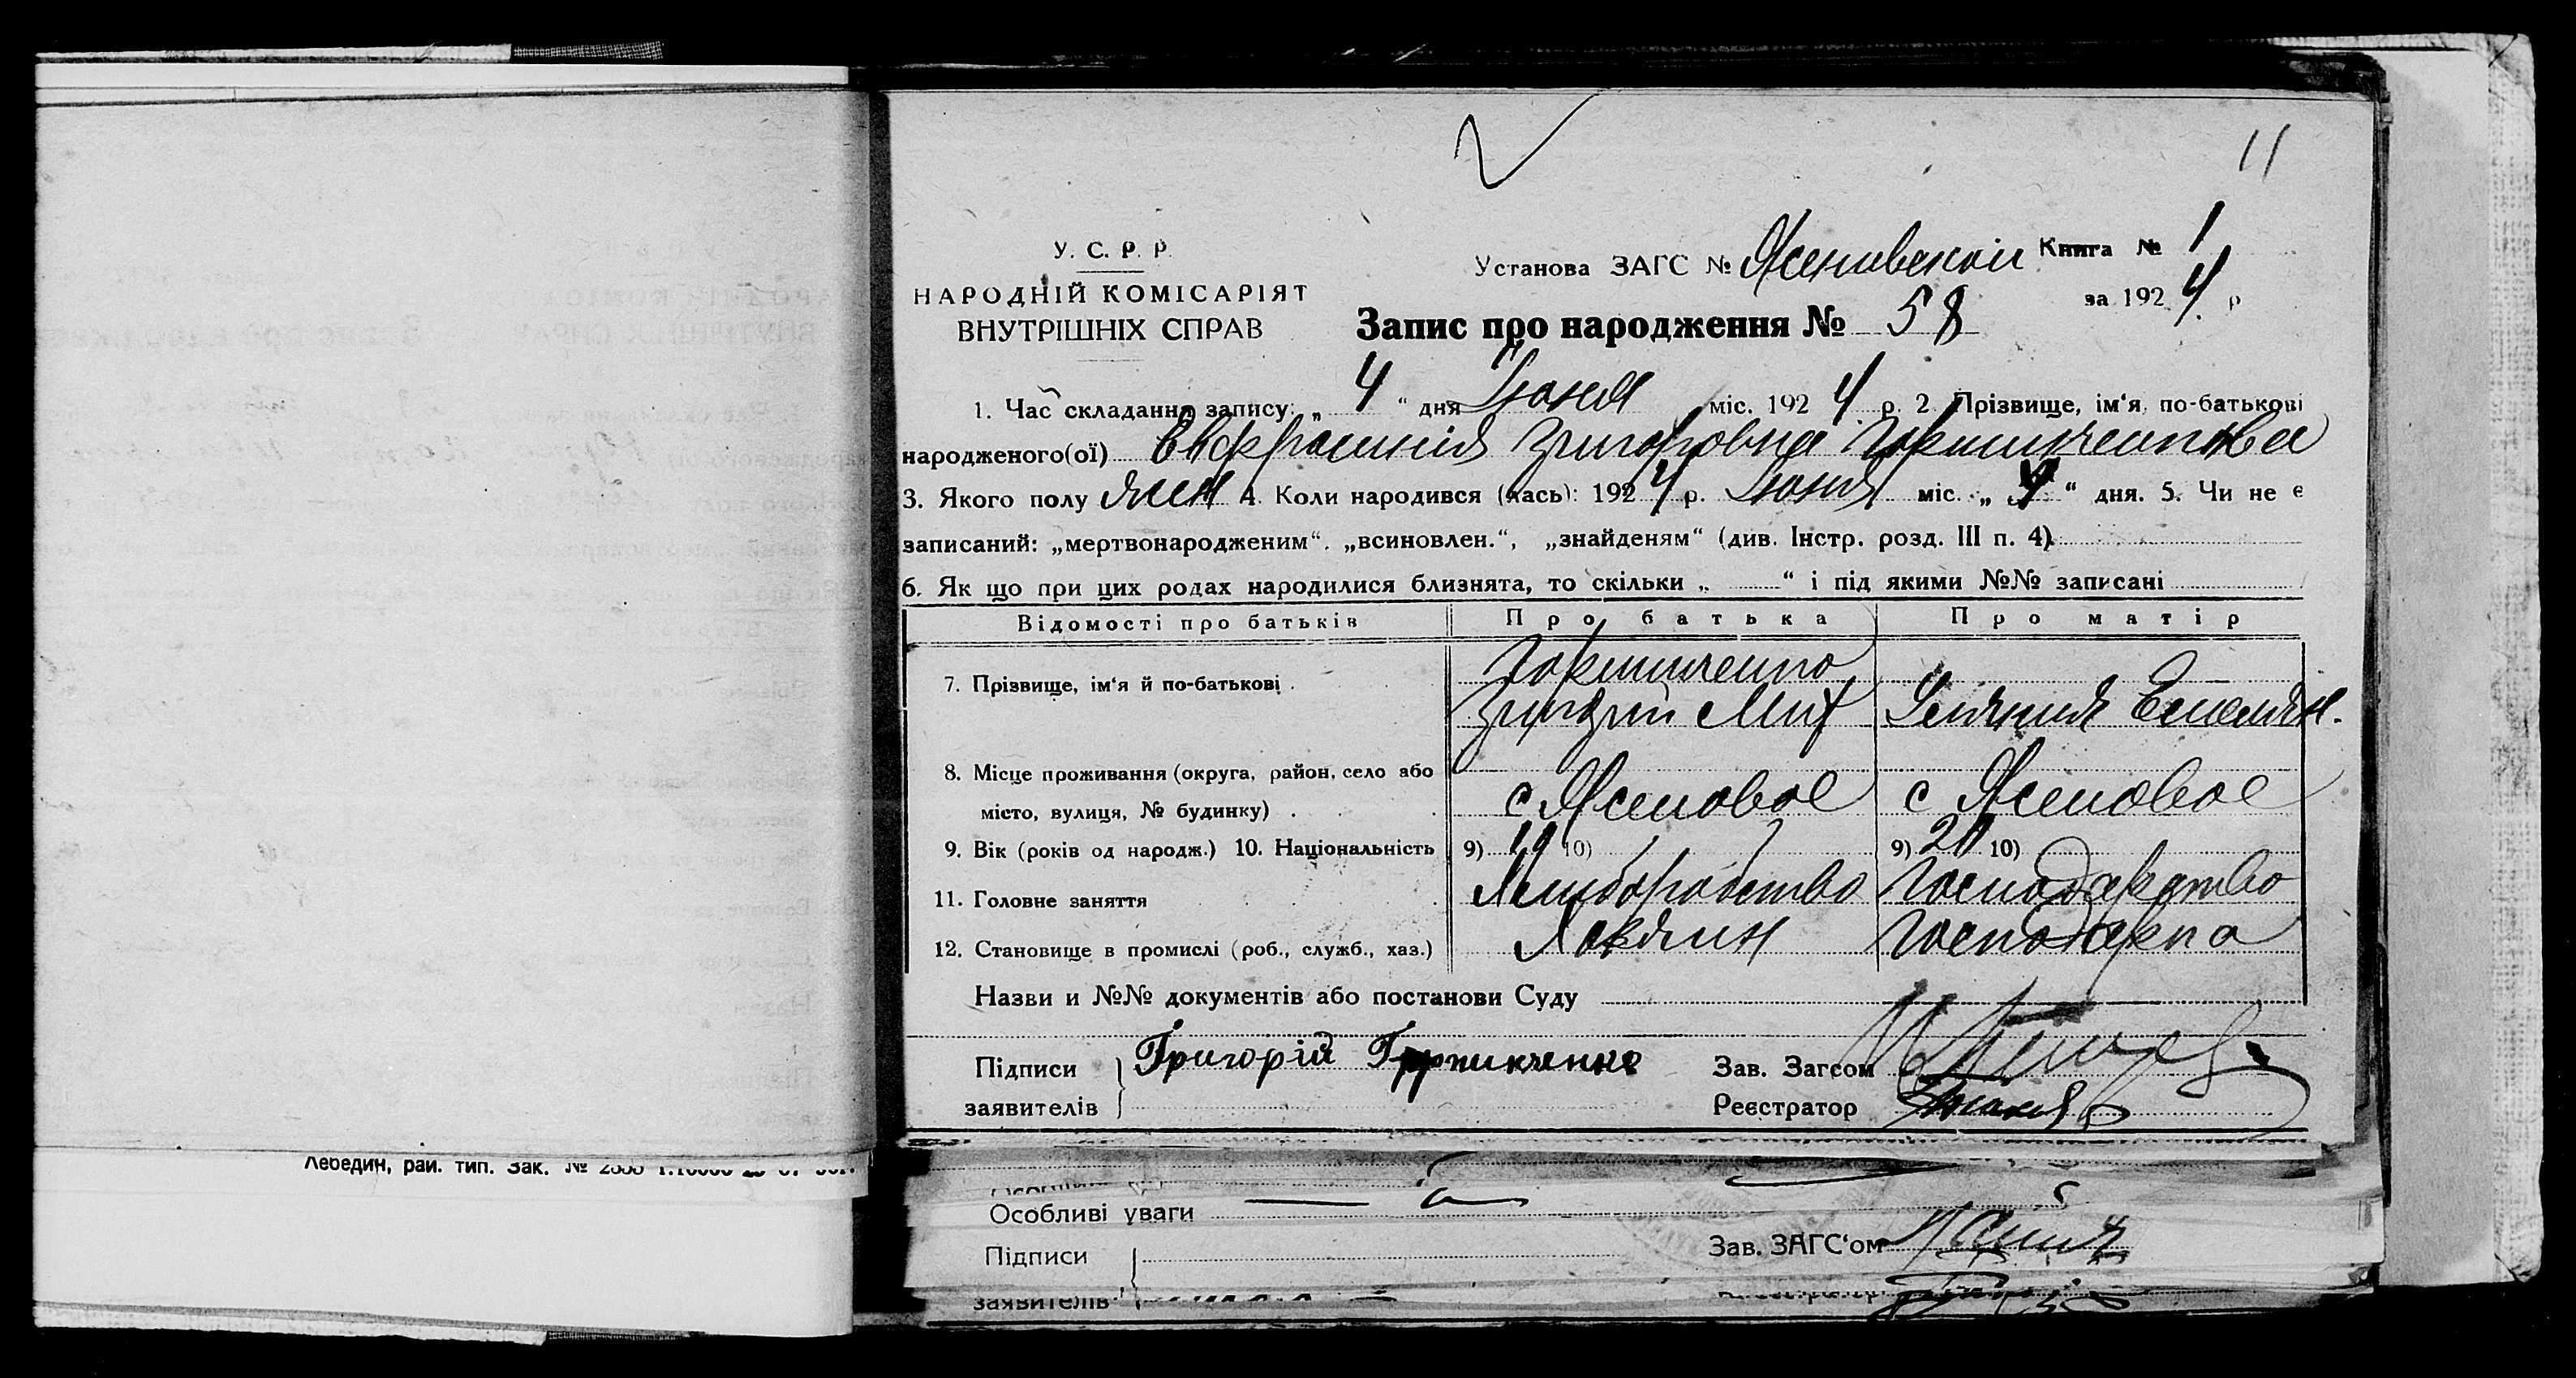 11
У. С. Р. Р.
НАРОДНІЙ КОМІСАРІЯТ
ВНУТРІШНІХ СПРАВ
Установа ЗАГС № Ясеновской Книга № 1
за 1924 р
Запис про народження № 58
1. Час складання запису: „ 4 “ дня Июня міс. 1924 р. 2. Прізвище, ім‘я, по-батькові
народженого(ої) Евфросиния Григоровна
3. Якого полу жен 4. Коли народився (лась): 1924 р. Июня міс. „ “ дня. 5. Чи не є
записаний: „мертвонародженим“, „всиновлен.“, „знайденям“ (див. Інстр. розд. III п. 4).
6. Як що при цих родах народилися близнята, то скільки „ “ і під якими №№ записані
Відомості про батьків Про батька Про матір
7. Прізвище, ім‘я й по-батькові .
Григорий Мих Емельян.
8. Місце проживання (округа, район, село або
місто, вулиця, № будинку) . с Ясеновое с Ясеновое
9. Вік (років од народж.) 10. Національність 9) 19 10) 9) 20 10)
11. Головне заняття Хлиборобство Господарство
12. Становище в промислі (роб., служб., хаз.) Хозяин Господарка
Назви и №№ документів або постанови Суду
Підписи Григорій Зав. Загсом
заявителів Реєстратор
Лебедин, рай. тип. Зак. №
Особливі уваги
Підписи Зав. ЗАГС‘ом
заявителів